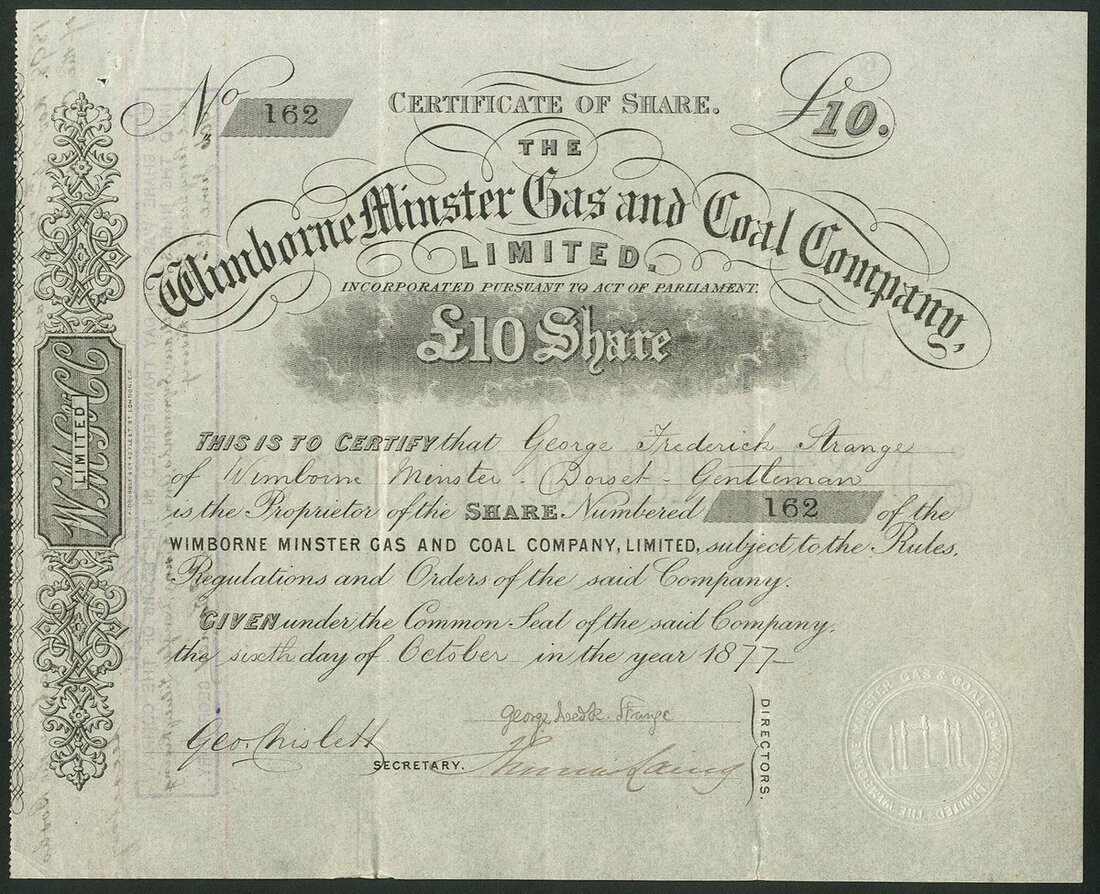 No 162
CERTIFICATE OF SHARE.
£10.
THE
Wimborne Minster Gas and Coal Company,
LIMITED.
INCORPORATED PURSUANT TO ACT OF PARLIAMENT.
£10 Share
THIS IS TO CERTIFY that George Frederick Strange
of Wimborne Minster - Dorset - Gentleman
is the Proprietor of the SHARE Numbered 162 of the
WIMBORNE MINSTER GAS AND COAL COMPANY, LIMITED, subject to the Rules,
Regulations and Orders of the said Company.
GIVEN under the Common Seal of the said Company,
the sixth day of October in the year 1877
George Fredk. Strange
Geo. Chislett
SECRETARY.
DIRECTORS.
WMG&CC
LIMITED
THE WIMBORNE MINSTER GAS & COAL COMPANY LIMITED